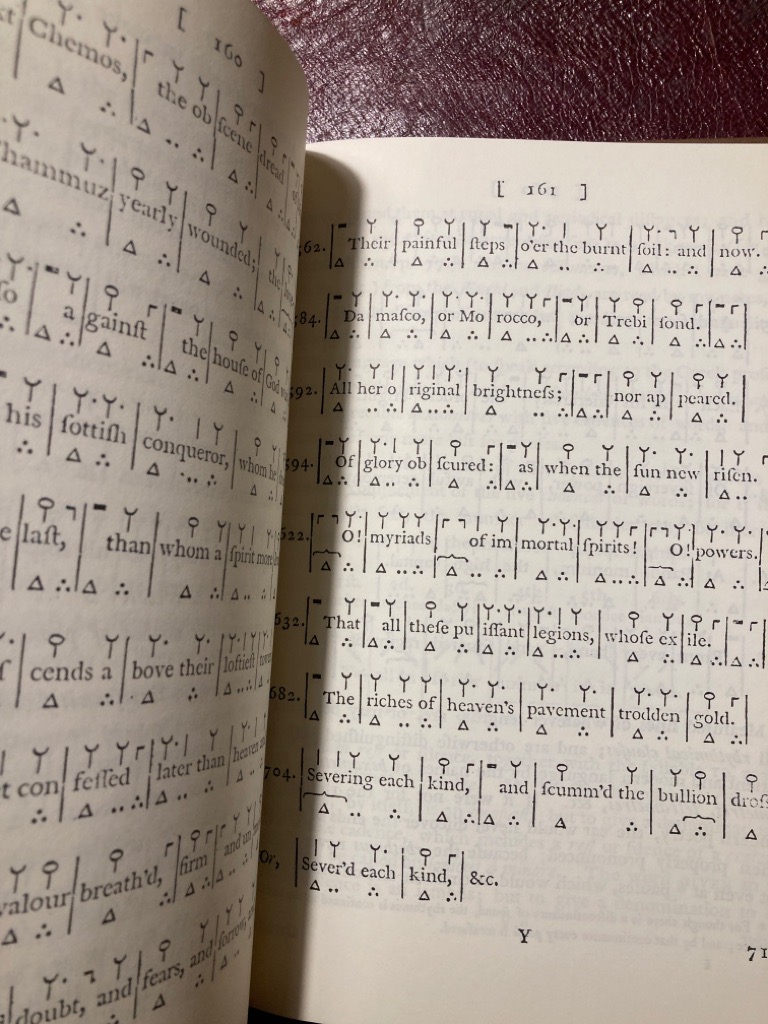 [ 160 ]
Chemos, the ob scene dread
Thammuz yearly wounded; the
a gainſt the houſe of God
his ſottiſh conqueror, whom he
laſt, than whom a ſpirit more
cends a bove their loftieſt
con feſſed later than heaven
valour breath'd, firm and
doubt, and fears, and ſorrow,
[ 161 ]
62. Their painful ſteps o'er the burnt ſoil: and now.
84. Da maſco, or Mo rocco, or Trebi ſond.
592. All her o riginal brightneſs; nor ap peared.
594. Of glory ob ſcured: as when the ſun new riſen.
622. O! myriads of im mortal ſpirits! O! powers.
632. That all theſe pu iſſant legions, whoſe ex ile.
682. The riches of heaven's pavement trodden gold.
704. Severing each kind, and ſcumm'd the bullion droſs
Or, Sever'd each kind, &c.
Y
71